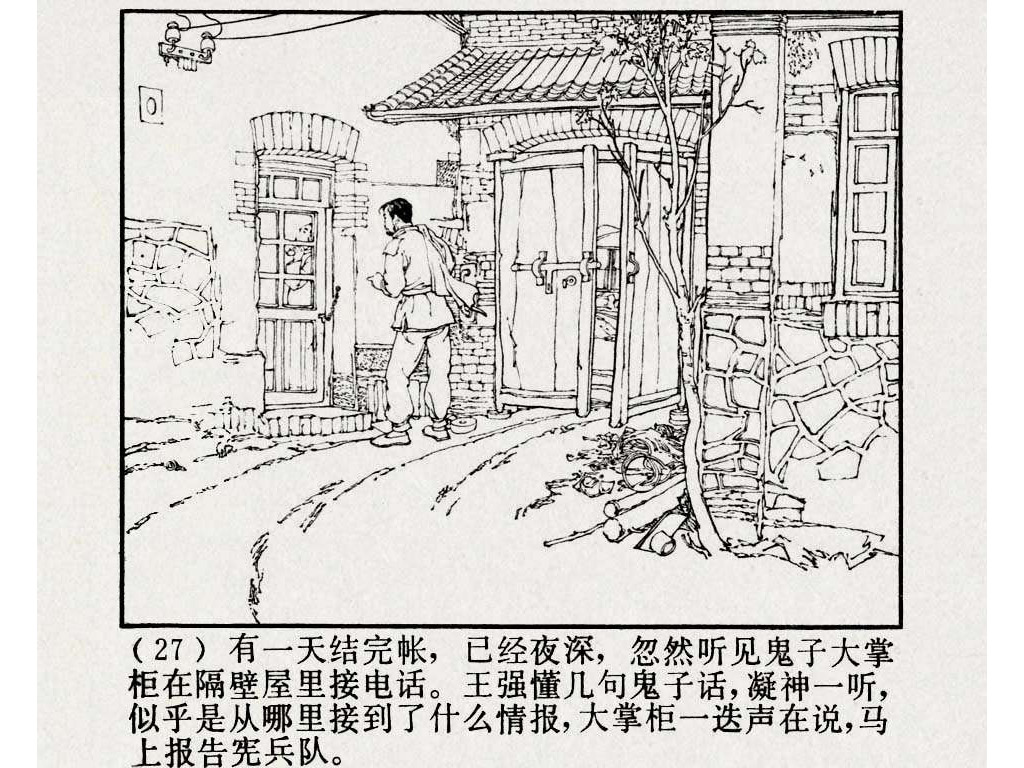 (27) 有一天结完帐，已经夜深，忽然听见鬼子大掌
柜在隔壁屋里接电话。王强懂几句鬼子话，凝神一听，
似乎是从哪里接到了什么情报，大掌柜一迭声在说，马
上报告宪兵队。